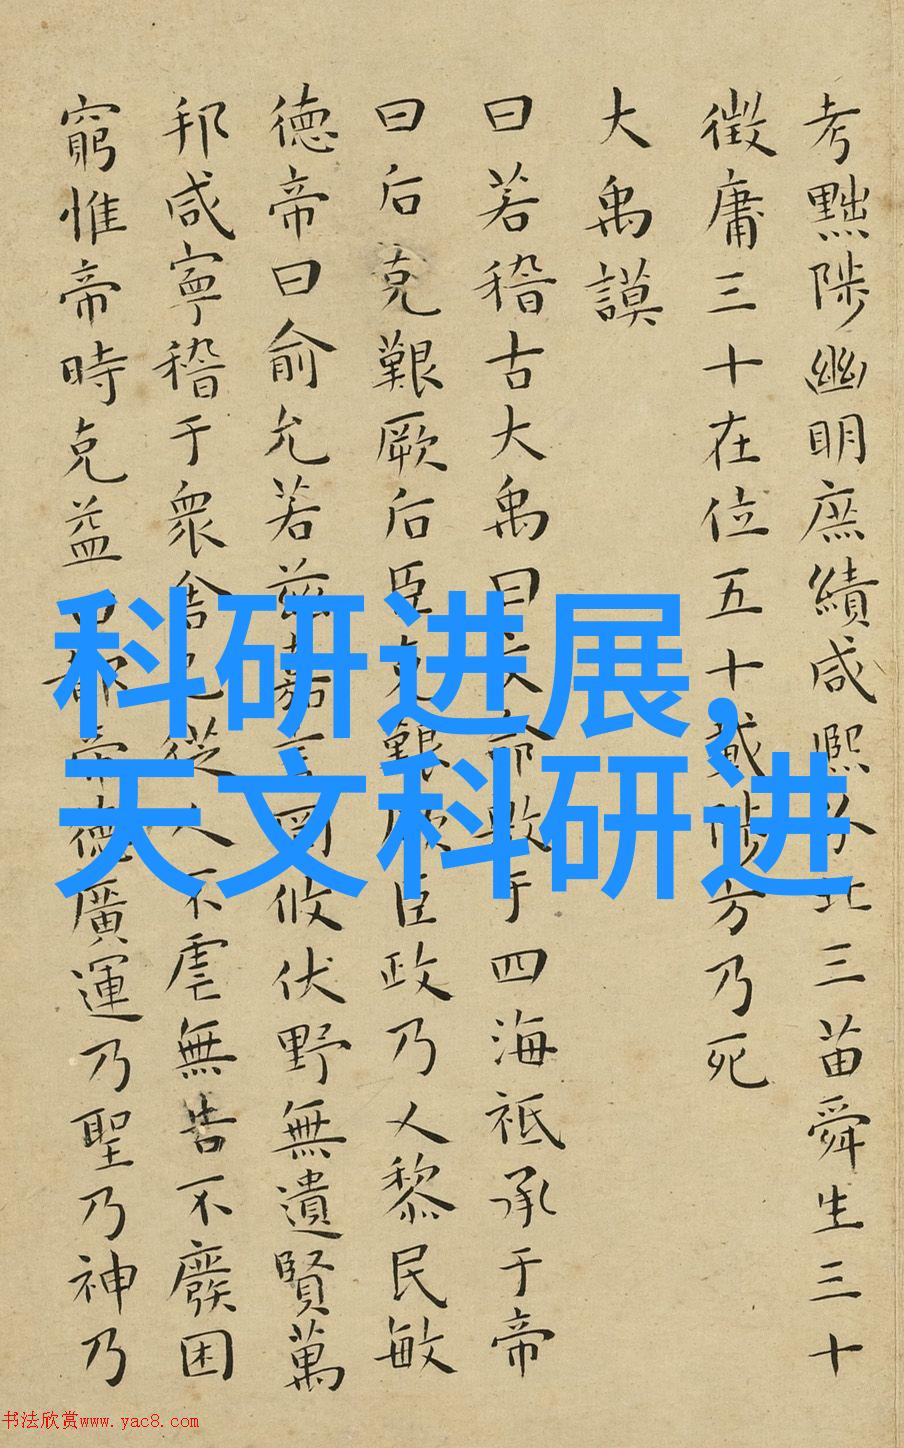 考黜陟幽明庶績咸熙分北三苗舜生三十
徵庸三十在位五十載陟方乃死
大禹謨
曰若稽古大禹曰文命敷于四海祗承于帝
曰后克艱厥后臣克艱厥臣政乃乂黎民敏
德帝曰俞允若茲嘉言罔攸伏野無遺賢萬
邦咸寧稽于眾舍己從人不虐無告不廢困
窮惟帝時克益曰都帝德廣運乃聖乃神乃
科研进展,
天文科研进
书法欣赏www.yac8.com